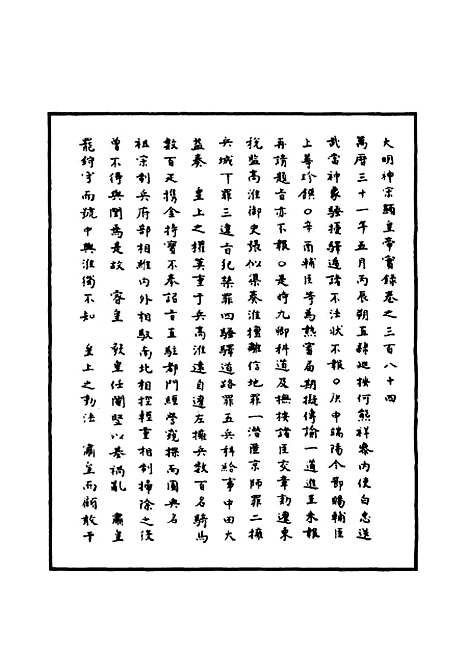 大明神宗顯皇帝實錄卷之三百八十四
萬曆三十一年五月丙辰朔直隸巡按何熊祥奏內使白忠送
武當神象騷擾驛遞諸不法狀不報○庚申端陽令節賜輔臣
上尊珍饌○辛酉輔臣等為熱審屆期擬傳諭一道進呈未報
再請題旨亦不報○是時九卿科道及撫按諸臣交章劾遼東
稅監高淮御史張似渠奏淮擅離信地罪一潛匿京師罪二擁
兵城下罪三違旨犯禁罪四騷驛道路罪五兵科給事中田大
益奏　皇上之權莫重于兵高淮遠自遼左擁兵數百名騎馬
數百疋攜金持寶不奉詔旨直駐都門經營窺探而國典名
祖宗制兵府部相維內外相馭南北相控輕重相制掃除之役
曾不得與聞焉是故　睿皇　毅皇任閹堅以基禍亂　肅皇
罷狩守而號中興淮獨不知　皇上之勤法　肅皇而顧敢干